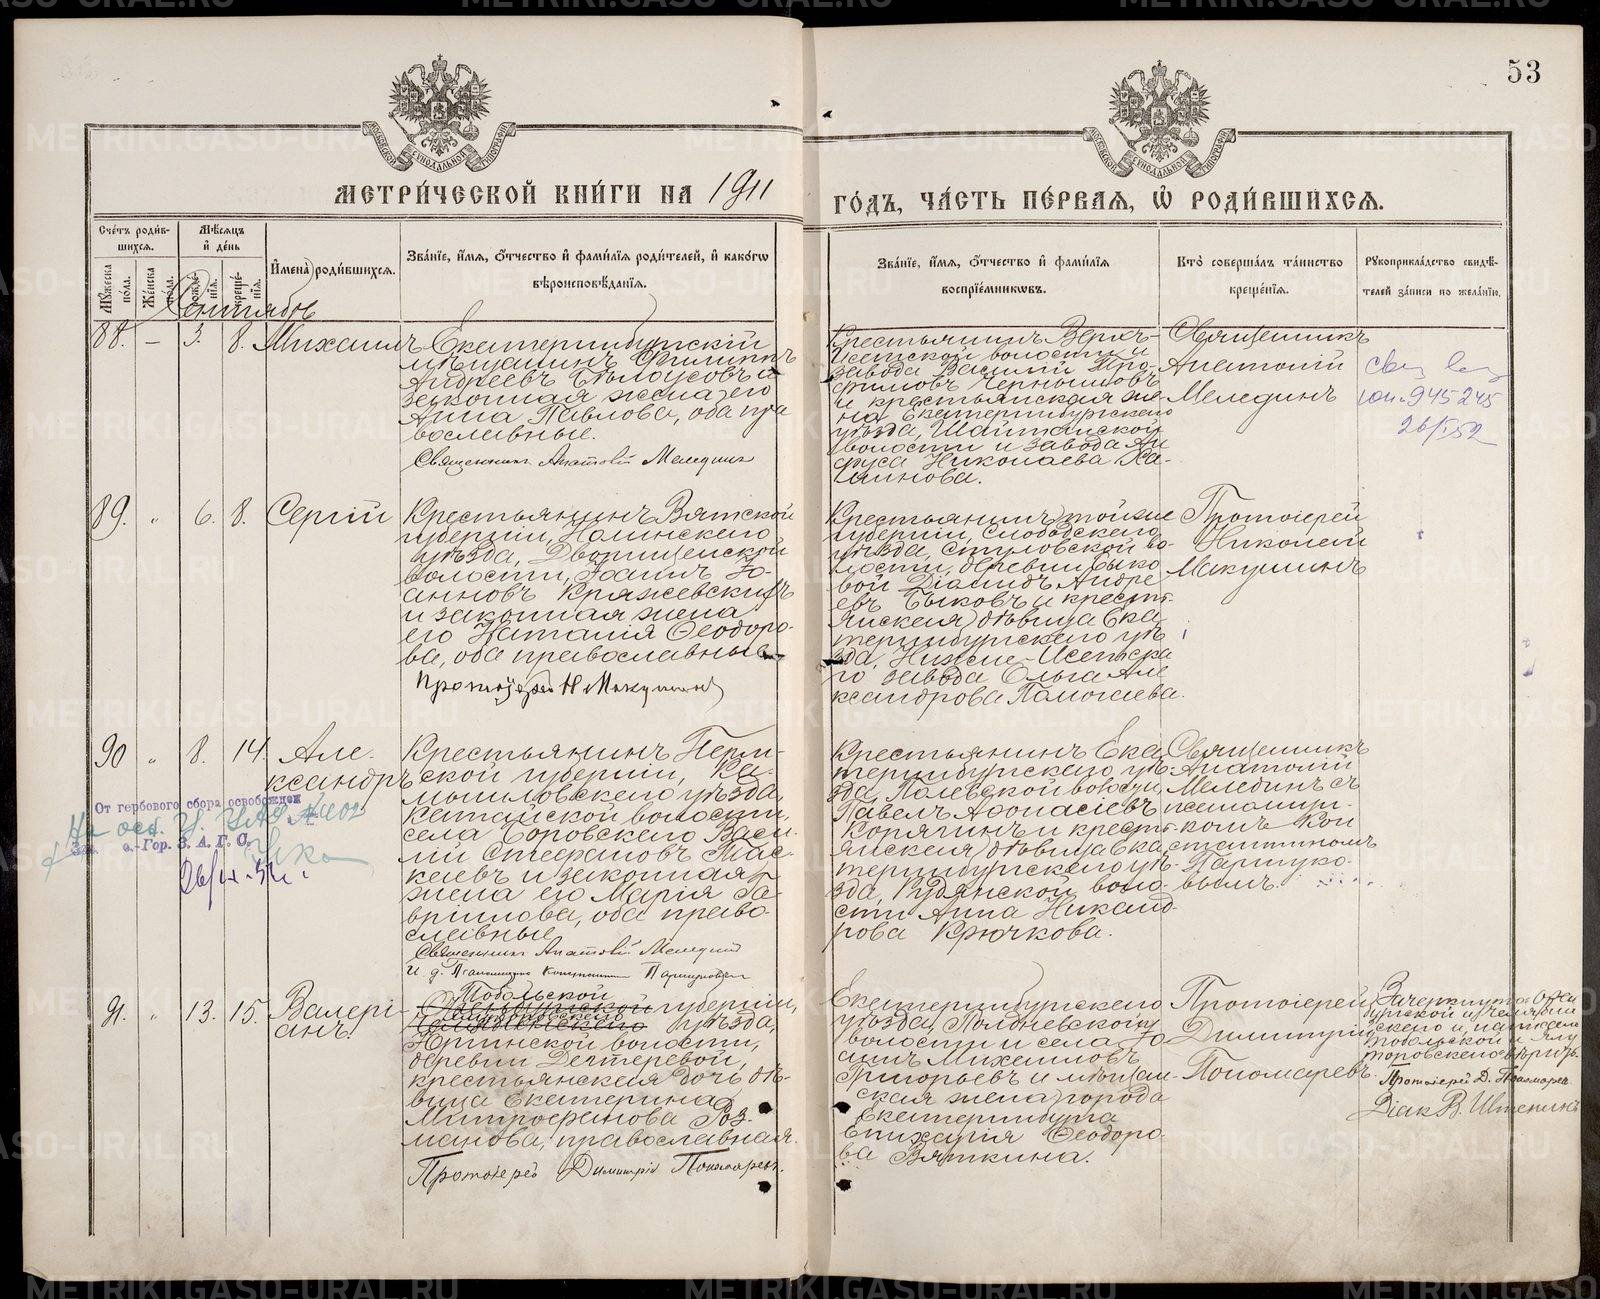 53
МОСКОВСКОЙ СѴНОДАЛЬНОЙ ТИПОГРАФІИ
МОСКОВСКОЙ СѴНОДАЛЬНОЙ ТИПОГРАФІИ
МЕТРИ́ЧЕСКОЙ КНИ́ГИ НА 1911
ГО́ДЪ, ЧА́СТЬ ПЕ́РВАѦ, Ѽ РОДИ́ВШИХСѦ.
Сче́тъ роди́в-
шихсѧ.
Мꙋ́жеска по́ла.
Же́нска по́ла.
Мѣ́сѧцъ и҆ де́нь
рожде́нїѧ.
креще́нїѧ.
И҆мена̀ роди́вшихсѧ.
Зва́нїе, и҆́мѧ, ѻ҆́тчество и҆ фами́лїѧ роди́телей, и҆ како́гѡ
вѣроисповѣ́данїѧ.
Зва́нїе, и҆́мѧ, ѻ҆́тчество и҆ фами́лїѧ
воспрїе́мниковъ.
Кто̀ соверша́лъ та́инство
креще́нїѧ.
Рꙋкоприкла́дство свидѣ́-
телей за́писи по жела́нїю.
Сентябрь
88. — 3. 8. Михаилъ
Екатеринбургскій
мѣщанинъ Филиппъ
Андреевъ Бѣлоусовъ и
законная жена его
Анна Павлова, оба пра
вославные.
Священникъ Анатолій Мелединъ
Крестьянинъ Верхъ-
Исетской волости и
завода Василій Тро-
фимовъ Чернышовъ
и крестьянская же-
на Екатеринбургскаго
уѣзда, Шайтанской
волости и завода Ан
фуса Николаева Ха-
минова.
Священникъ
Анатолій
Мелединъ
945245
26/I 52
89. „ 6. 8. Сергій
Крестьянинъ Вятской
губерніи, Нолинскаго
уѣзда, Дворищенской
волости, Іоаннъ Іо-
анновъ Кряжевскихъ
и законная жена
его Наталія Ѳеодоро-
ва, оба православные
Протоіерей Н Макушинъ
Крестьянинъ той же
губерніи, Слободскаго
уѣзда, Стуловской во-
лости, деревни Быко
вой Діамидъ Андре
евъ Быковъ и крестъ-
янская дѣвица Ека
теринбургскаго уѣ
зда, Нижне-Исетска
го завода Ольга Але
ксандрова Паначева.
Протоіерей
Николай
Макушинъ
90 „ 8. 14. Але-
ксандръ
От гербового сбора освобожден
На осн.
Гор. З. А. Г. С.
Крестьянинъ Перм-
ской губерніи, Ка-
мышловскаго уѣзда,
Катайской волости,
села Боровскаго Васи-
лій Стефановъ Тас-
каевъ и законная
жена его Марія Га-
вріилова, оба право-
славные
Священникъ Анатолій Мелединъ
И. д. Псаломщика Константинъ
Крестьянинъ Ека
теринбургскаго уѣ
зда, Полевской волости,
Павелъ Аѳонасіевъ
Корягинъ и крестъ-
янская дѣвица Ека
теринбургскаго уѣ-
зда, Рудянской воло-
сти Анна Никанд-
рова Крючкова.
Священникъ
Анатолій
Мелединъ съ
псаломщи-
комъ Кон
стантиномъ
91. „ 13. 15. Валері-
анъ.
Тобольской
губерніи,
уѣзда,
волости,
деревни Дегтеревой,
крестьянская дочь дѣ-
вица Екатерина
Митрофанова Роз-
манова, православная.
Протоіерей Димитрій Пономаревъ.
Екатеринбургскаго
уѣзда, Полдневской
волости и села Іо-
аннъ Михаиловъ
Григорьевъ и мѣщан-
ская жена города
Екатеринбурга
Епихарія Ѳеодоро-
ва Вяткина.
Протоіерей
Димитрій
Пономаревъ.
Зачеркнуто Орен
бургской и Челябин
скаго и, написано
Тобольской и Ялу
торовскаго вѣрить.
Протоіерей Д. Пономарев
Діак В.
METRIKI.GASO-URAL.RU